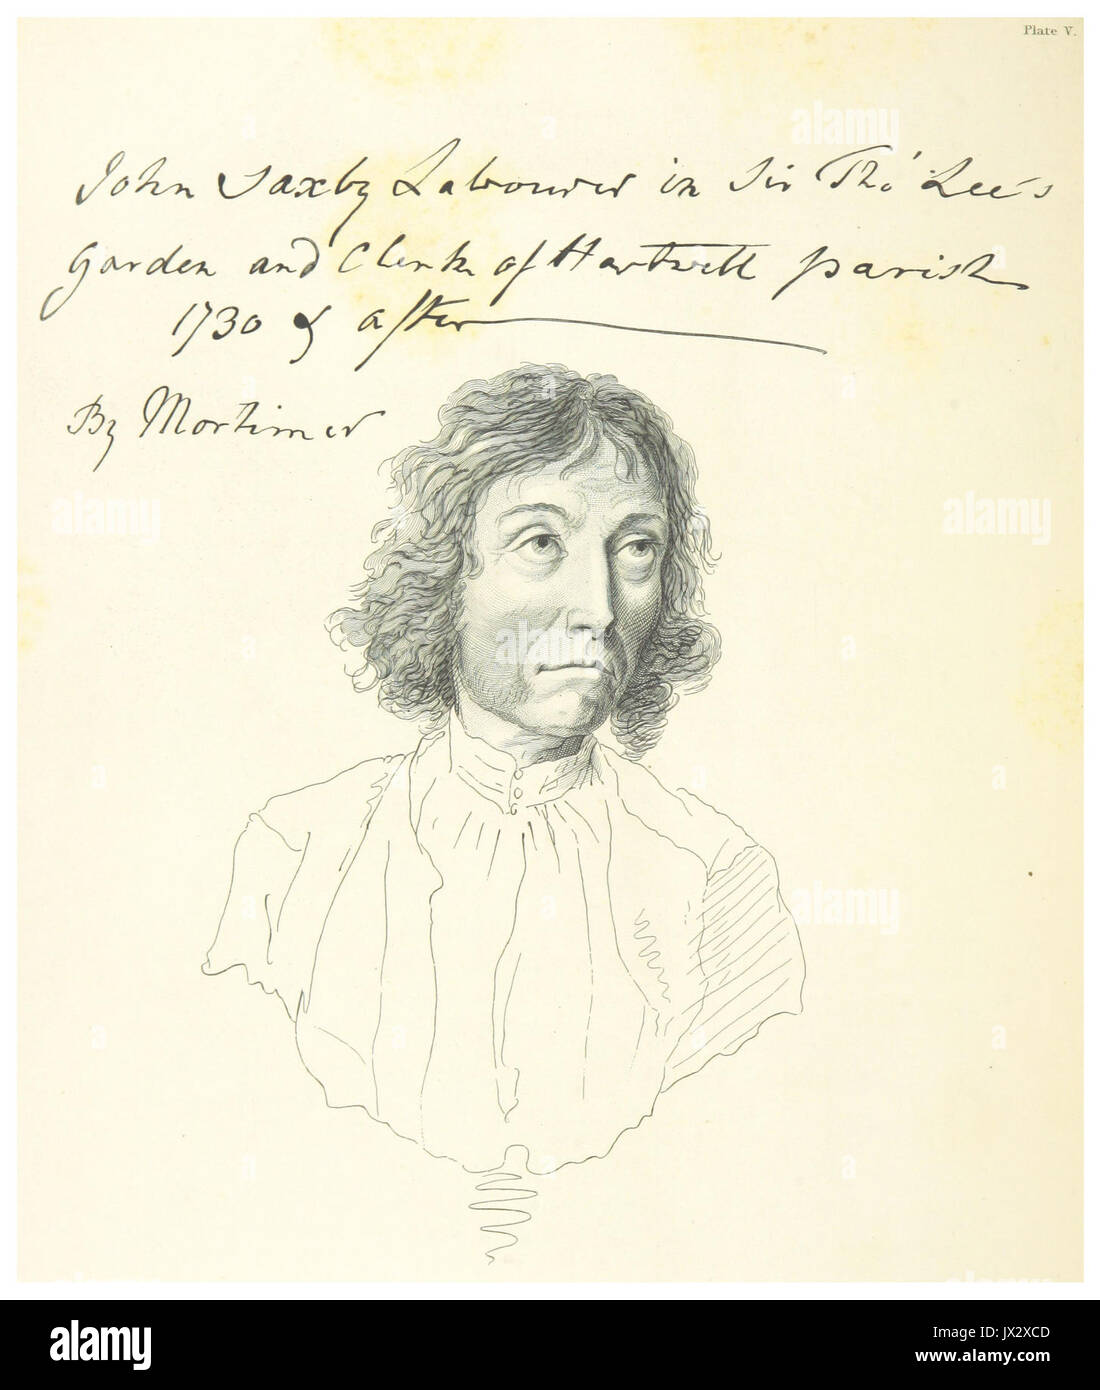 Plate V.
John Saxby Labourer in Sir Tho' Lee's
Garden and Clerk of Hartwell parish
1730 & after
By Mortimer
alamy
alamy
alamy
alamy
alamy
a
a
a
a
a
a
a
a
alamy
alamy
Image ID: JX2XCD
www.alamy.com